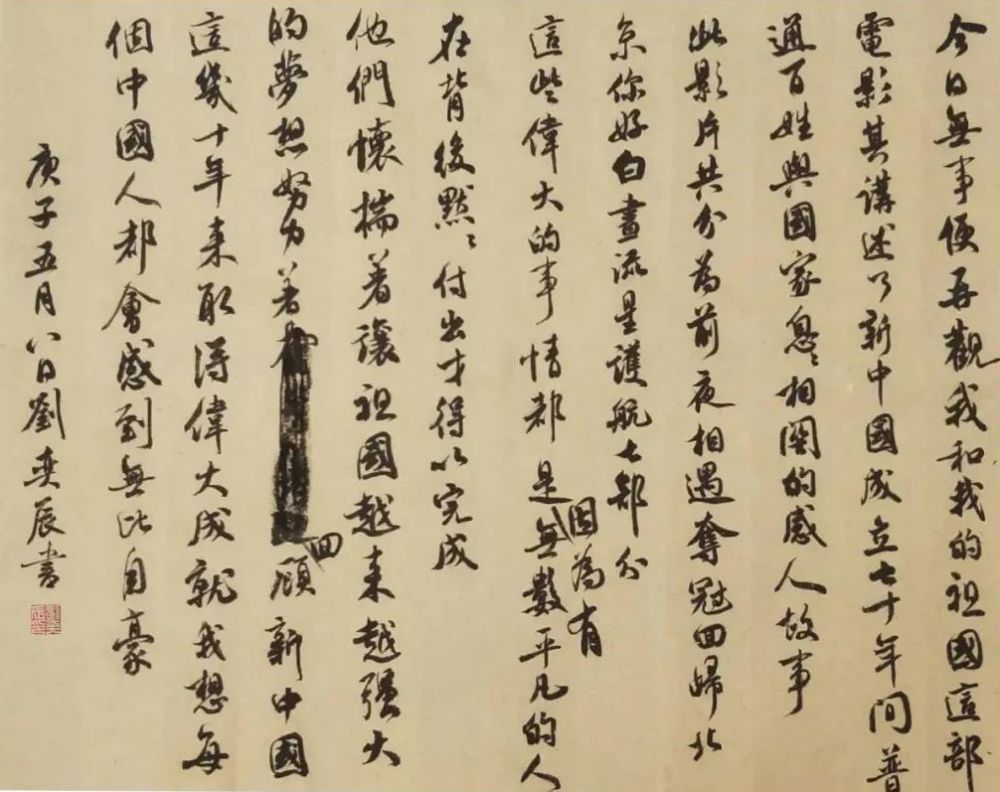 今日無事便再觀我和我的祖國這部
電影其講述了新中國成立七十年间普
通百姓與國家息息相関的感人故事
此影片共分為前夜相遇奪冠回歸北
京你好白晝流星護航七部分
這些偉大的事情都是因為有無數平凡的人
在背後默默付出才得以完成
他們懷揣著讓祖國越来越强大
的夢想努力著回顧新中國
這幾十年来取得偉大成就我想每
個中國人都會感到無比自豪
庚子五月八日劉奕辰書